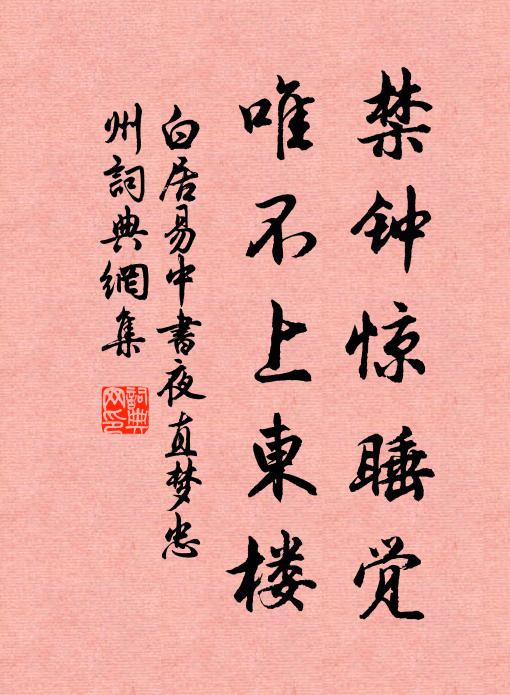 禁钟惊睡觉
唯不上東楼
白居易中書夜直梦忠
州詞典網集
詞典
网印